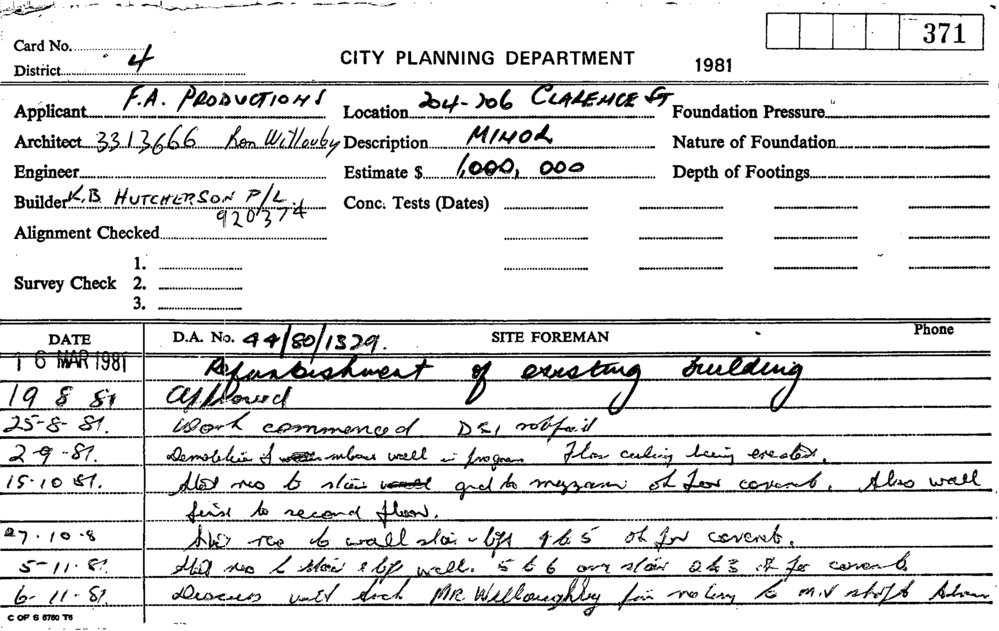 371
Card No.
District 4
CITY PLANNING DEPARTMENT 1981
Applicant F.A. PRODUCTIONS Location 204-206 CLARENCE ST Foundation Pressure
Architect 3313666 Ron Willouby Description MINOR Nature of Foundation
Engineer Estimate $ 1,000,000 Depth of Footings
Builder K.B. HUTCHERSON P/L. Conc. Tests (Dates)
920374
Alignment Checked
1.
Survey Check 2.
3.
DATE D.A. No. 44/80/1329. SITE FOREMAN Phone
16 MAR 1981 Refurbishment of existing building
19 8 81 Approved
25-8-81. Work commenced DSI
2-9-81. Demolition of wall in Floor ceiling being erected.
15-10 81. Steel reo to stair and to ok for concrete. Also wall
first to second floor.
27-10-8 Steel reo to wall stair - lift 4 to 5 ok for concrete.
5-11-81 Steel reo to stair & lift well. 5 to 6 stair 2 to 3 for concrete.
6-11-81 Discuss with Arch MR. Willoughby
C OF S 6760 T6